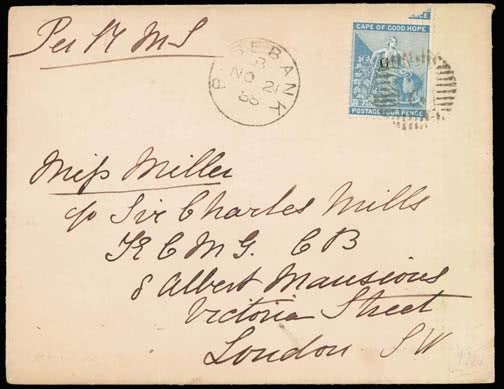 Per R M S
ROSEBANK
B
NO 21
88
ENCE
CAPE OF GOOD HOPE
G
POSTAGE FOUR PENCE
Miss Miller
c/o Sir Charles Mills
K C M G. C B
8 Albert Mansions
Victoria Street
London S W